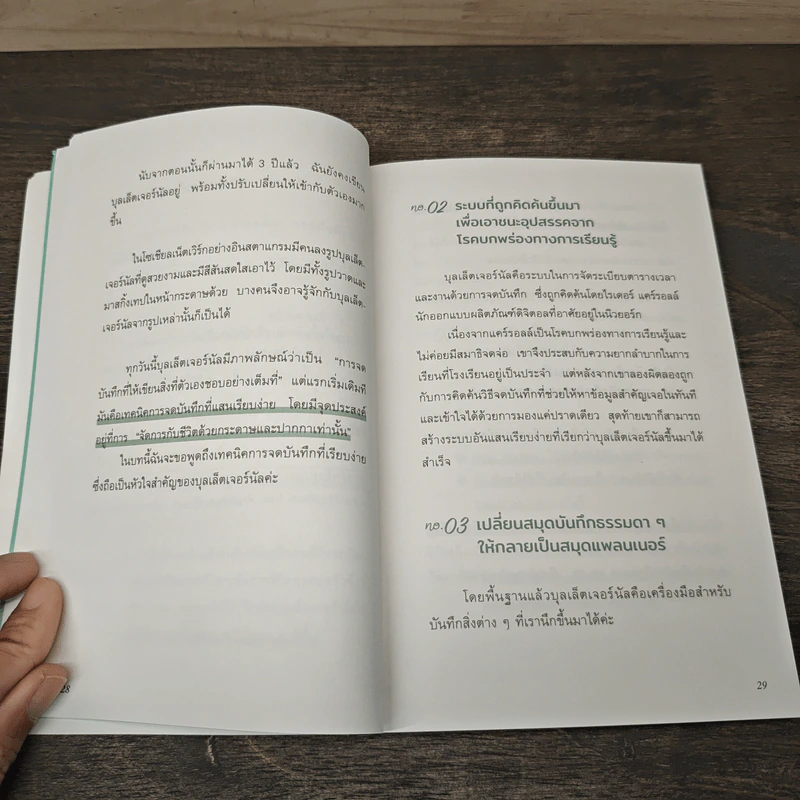 นับจากตอนนั้นก็ผ่านมาได้ 3 ปีแล้ว ฉันยังคงเขียน
บุลเล็ตเจอร์นัลอยู่ พร้อมทั้งปรับเปลี่ยนให้เข้ากับตัวเองมาก
ขึ้น
ในโซเชียลเน็ตเวิร์กอย่างอินสตาแกรมมีคนลงรูปบุลเล็ต-
เจอร์นัลที่ดูสวยงามและมีสีสันสดใสเอาไว้ โดยมีทั้งรูปวาดและ
มาสกิ้งเทปในหน้ากระดาษด้วย บางคนจึงอาจรู้จักกับบุลเล็ต-
เจอร์นัลจากรูปเหล่านั้นก็เป็นได้
ทุกวันนี้บุลเล็ตเจอร์นัลมีภาพลักษณ์ว่าเป็น “การจด
บันทึกที่ให้เขียนสิ่งที่ตัวเองชอบอย่างเต็มที่” แต่แรกเริ่มเดิมที
มันคือเทคนิคการจดบันทึกที่แสนเรียบง่าย โดยมีจุดประสงค์
อยู่ที่การ “จัดการกับชีวิตด้วยกระดาษและปากกาเท่านั้น”
ในบทนี้ฉันจะขอพูดถึงเทคนิคการจดบันทึกที่เรียบง่าย
ซึ่งถือเป็นหัวใจสำคัญของบุลเล็ตเจอร์นัลค่ะ
28
no.02 ระบบที่ถูกคิดค้นขึ้นมา
เพื่อเอาชนะอุปสรรคจาก
โรคบกพร่องทางการเรียนรู้
บุลเล็ตเจอร์นัลคือระบบในการจัดระเบียบตารางเวลา
และงานด้วยการจดบันทึก ซึ่งถูกคิดค้นโดยไรเดอร์ แคร์รอลล์
นักออกแบบผลิตภัณฑ์ดิจิตอลที่อาศัยอยู่ในนิวยอร์ก
เนื่องจากแคร์รอลล์เป็นโรคบกพร่องทางการเรียนรู้และ
ไม่ค่อยมีสมาธิจดจ่อ เขาจึงประสบกับความยากลำบากในการ
เรียนที่โรงเรียนอยู่เป็นประจำ แต่หลังจากเขาลองผิดลองถูก
กับการคิดค้นวิธีจดบันทึกที่ช่วยให้หาข้อมูลสำคัญเจอในทันที
และเข้าใจได้ด้วยการมองแค่ปราดเดียว สุดท้ายเขาก็สามารถ
สร้างระบบอันแสนเรียบง่ายที่เรียกว่าบุลเล็ตเจอร์นัลขึ้นมาได้
สำเร็จ
no.03 เปลี่ยนสมุดบันทึกธรรมดา ๆ
ให้กลายเป็นสมุดแพลนเนอร์
โดยพื้นฐานแล้วบุลเล็ตเจอร์นัลคือเครื่องมือสำหรับ
บันทึกสิ่งต่าง ๆ ที่เรานึกขึ้นมาได้ค่ะ
29